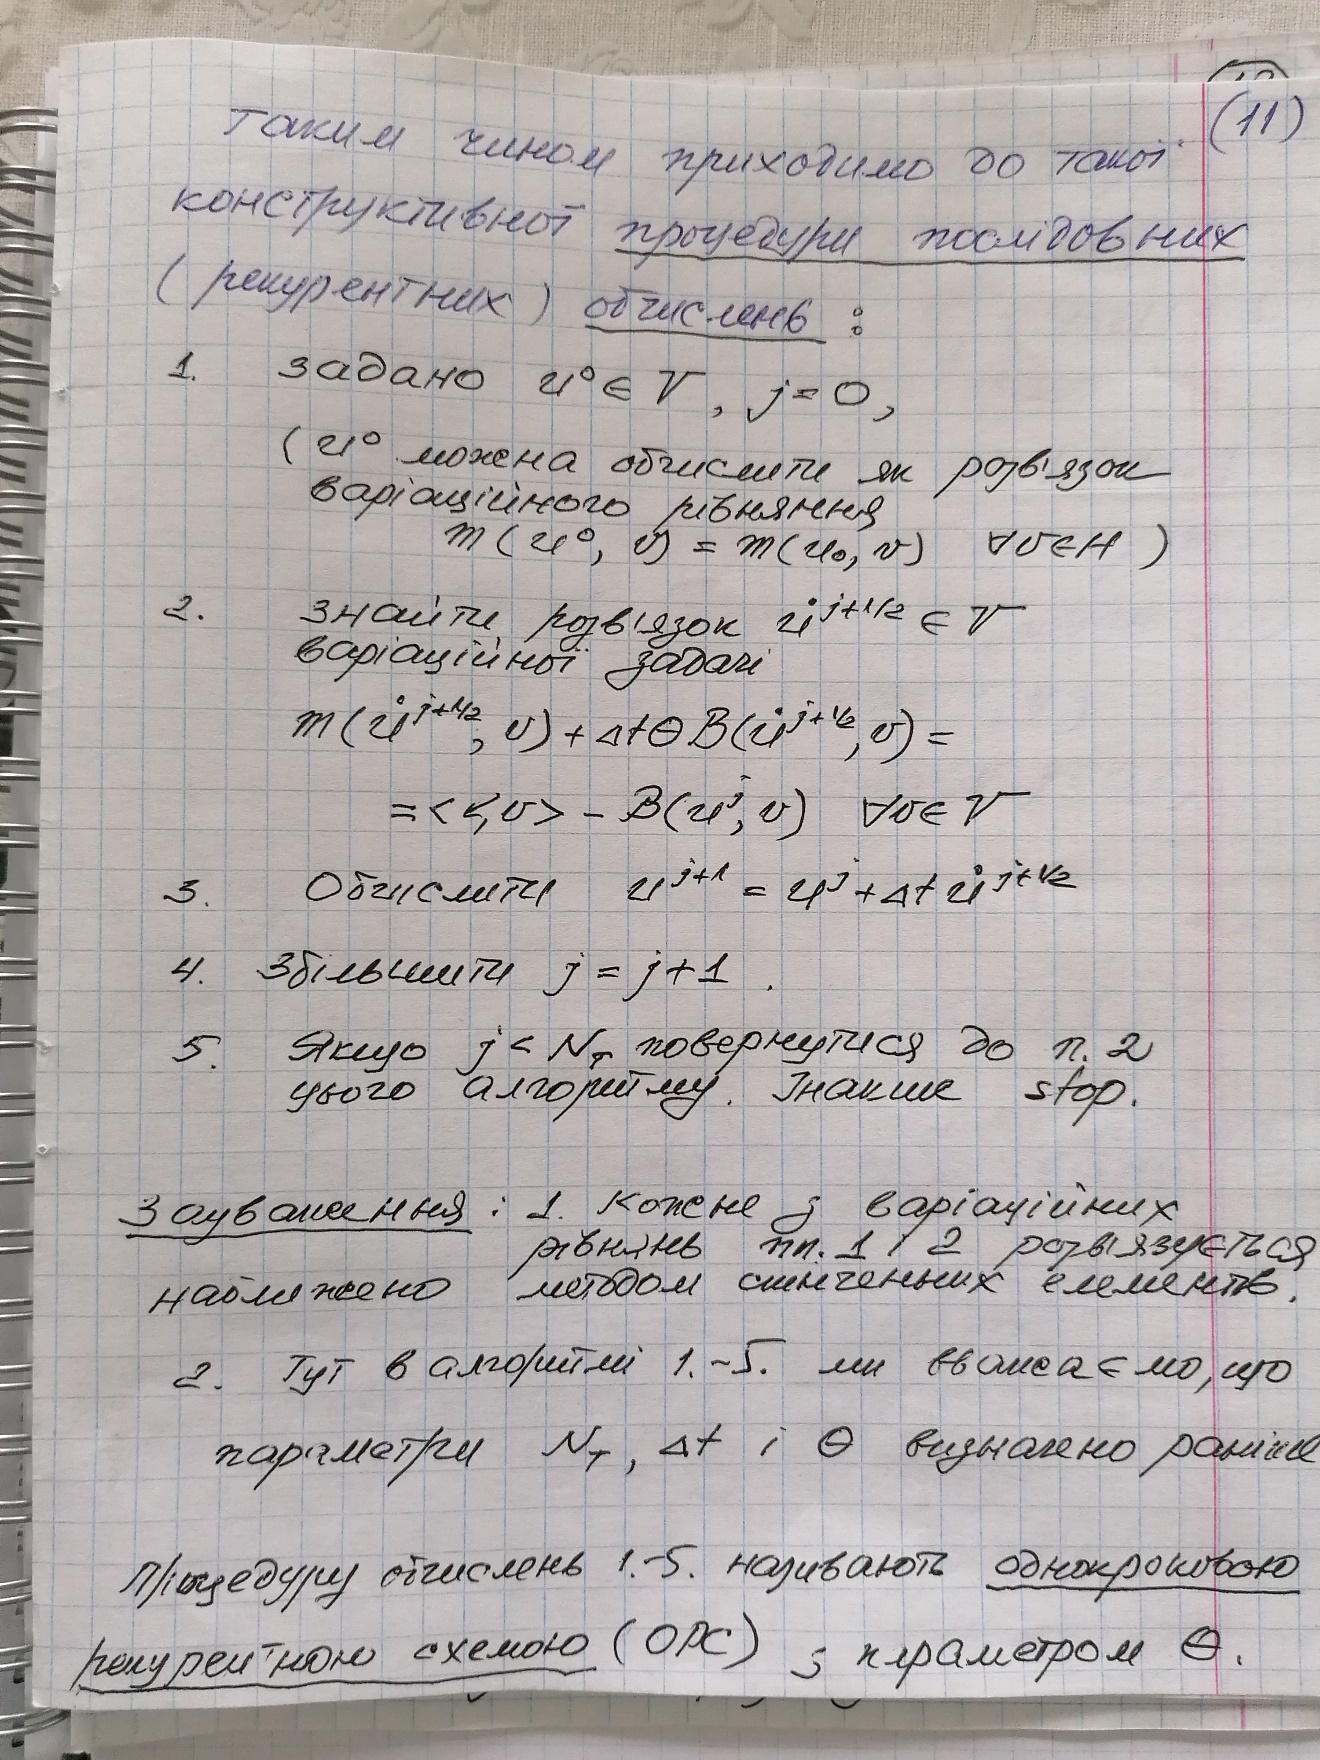 (11)
Таким чином приходимо до такої
конструктивної процедури послідовних
(рекурентних) обчислень:
1. Задано u⁰ ∈ V, j = 0,
(u⁰ можна обчислити як розв'язок
варіаційного рівняння
m(u⁰, v) = m(u₀, v) ∀v∈H)
2. Знайти розв'язок u̇^{j+1/2} ∈ V
варіаційної задачі
m(u̇^{j+1/2}, v) + ΔtθB(u̇^{j+1/2}, v) =
= < , v> - B(u^j, v) ∀v∈V
3. Обчислити u^{j+1} = u^j + Δt u̇^{j+1/2}
4. Збільшити j = j+1.
5. Якщо j < N_T повернутися до п. 2
цього алгоритму. Інакше stop.
Зауваження: 1. Кожне з варіаційних
рівнянь пп. 1 і 2 розв'язується
наближено методом скінченних елементів.
2. Тут в алгоритмі 1.-5. ми вважаємо, що
параметри N_T, Δt і θ визначено раніше
Процедуру обчислень 1.-5. називають однокроковою
рекурентною схемою (ОРС) з параметром θ.